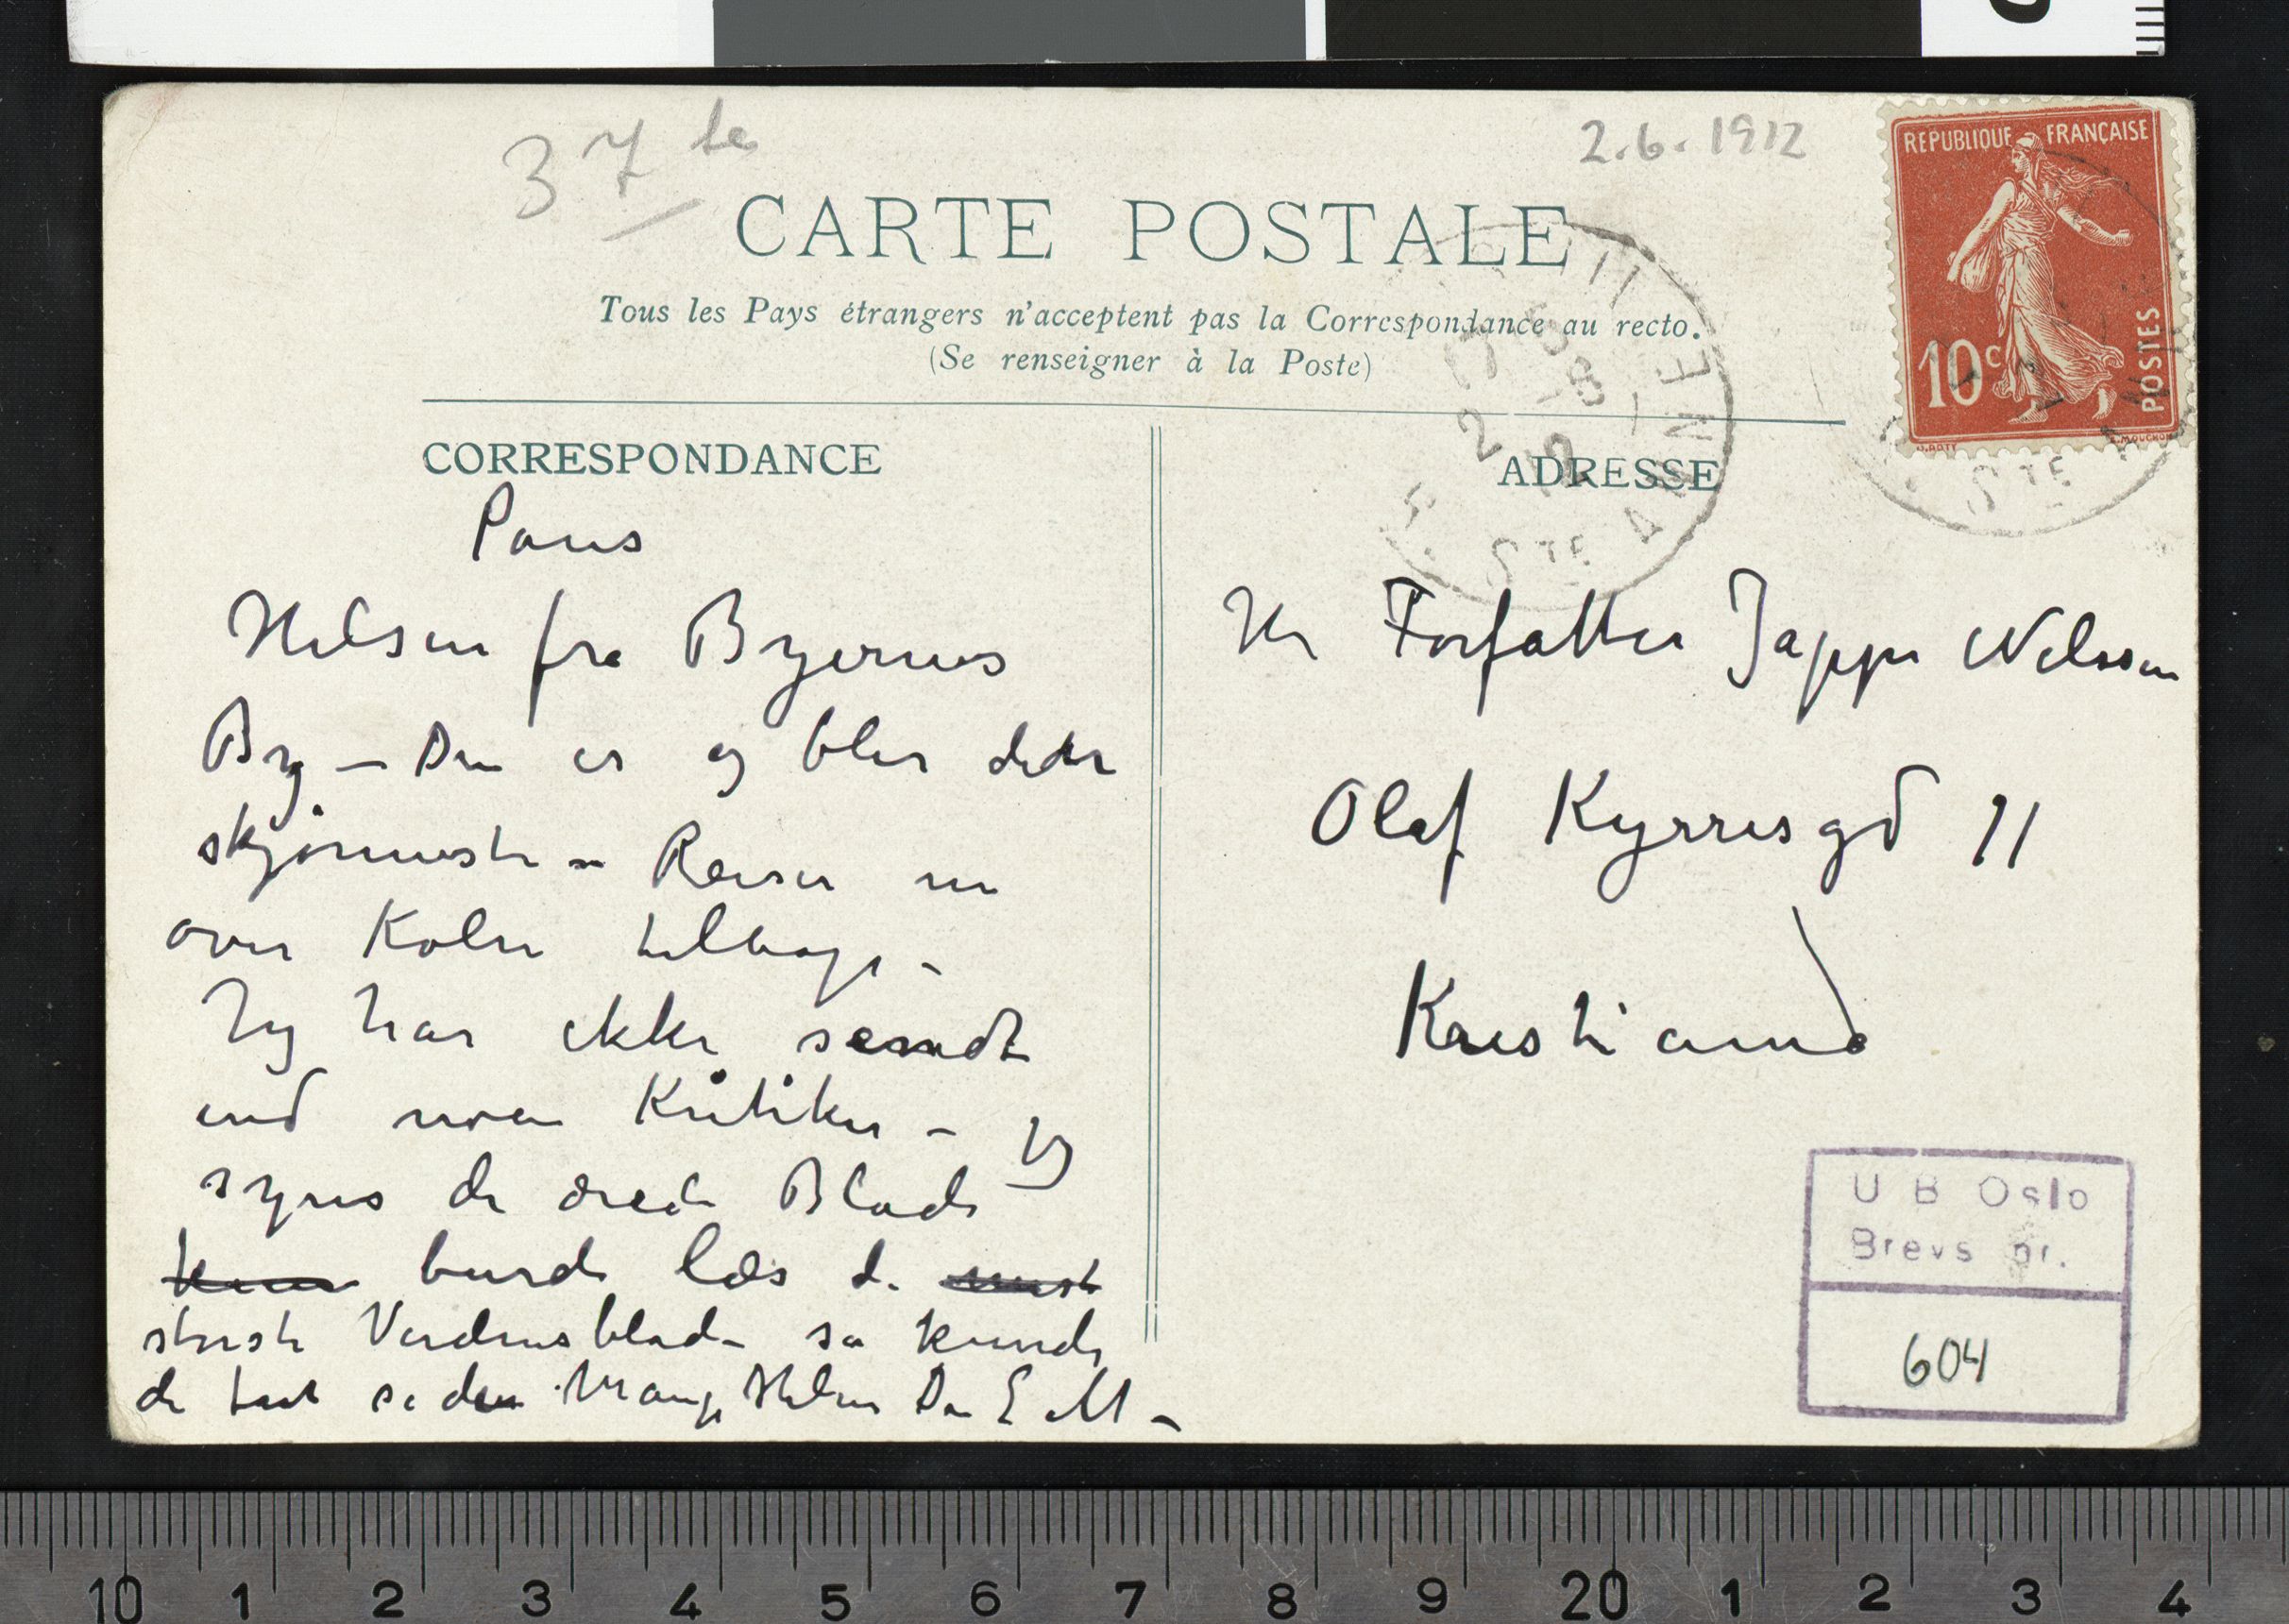 37te
2.6.1912
REPUBLIQUE FRANÇAISE
10c
POSTES
CARTE POSTALE
Tous les Pays étrangers n'acceptent pas la Correspondance au recto.
(Se renseigner à la Poste)
CORRESPONDANCE
Paris
Hilsen fra Byernes
By – Den er og blir dette
skjønneste – Reiser nu
over Køln tilbage –
Jeg har ikke sendt
end noen Kritiker – jeg
synes de ærede Blade
burde læse de
største Verdensblade så kunde
de tat se den Mange Hilsner Din E M –
ADRESSE
Hr Forfatter Jappe Nilssen
Olaf Kyrresgd 11
Kristiania
R. STE ANNE
U B Oslo
Brevs nr.
604
10 1 2 3 4 5 6 7 8 9 20 1 2 3 4